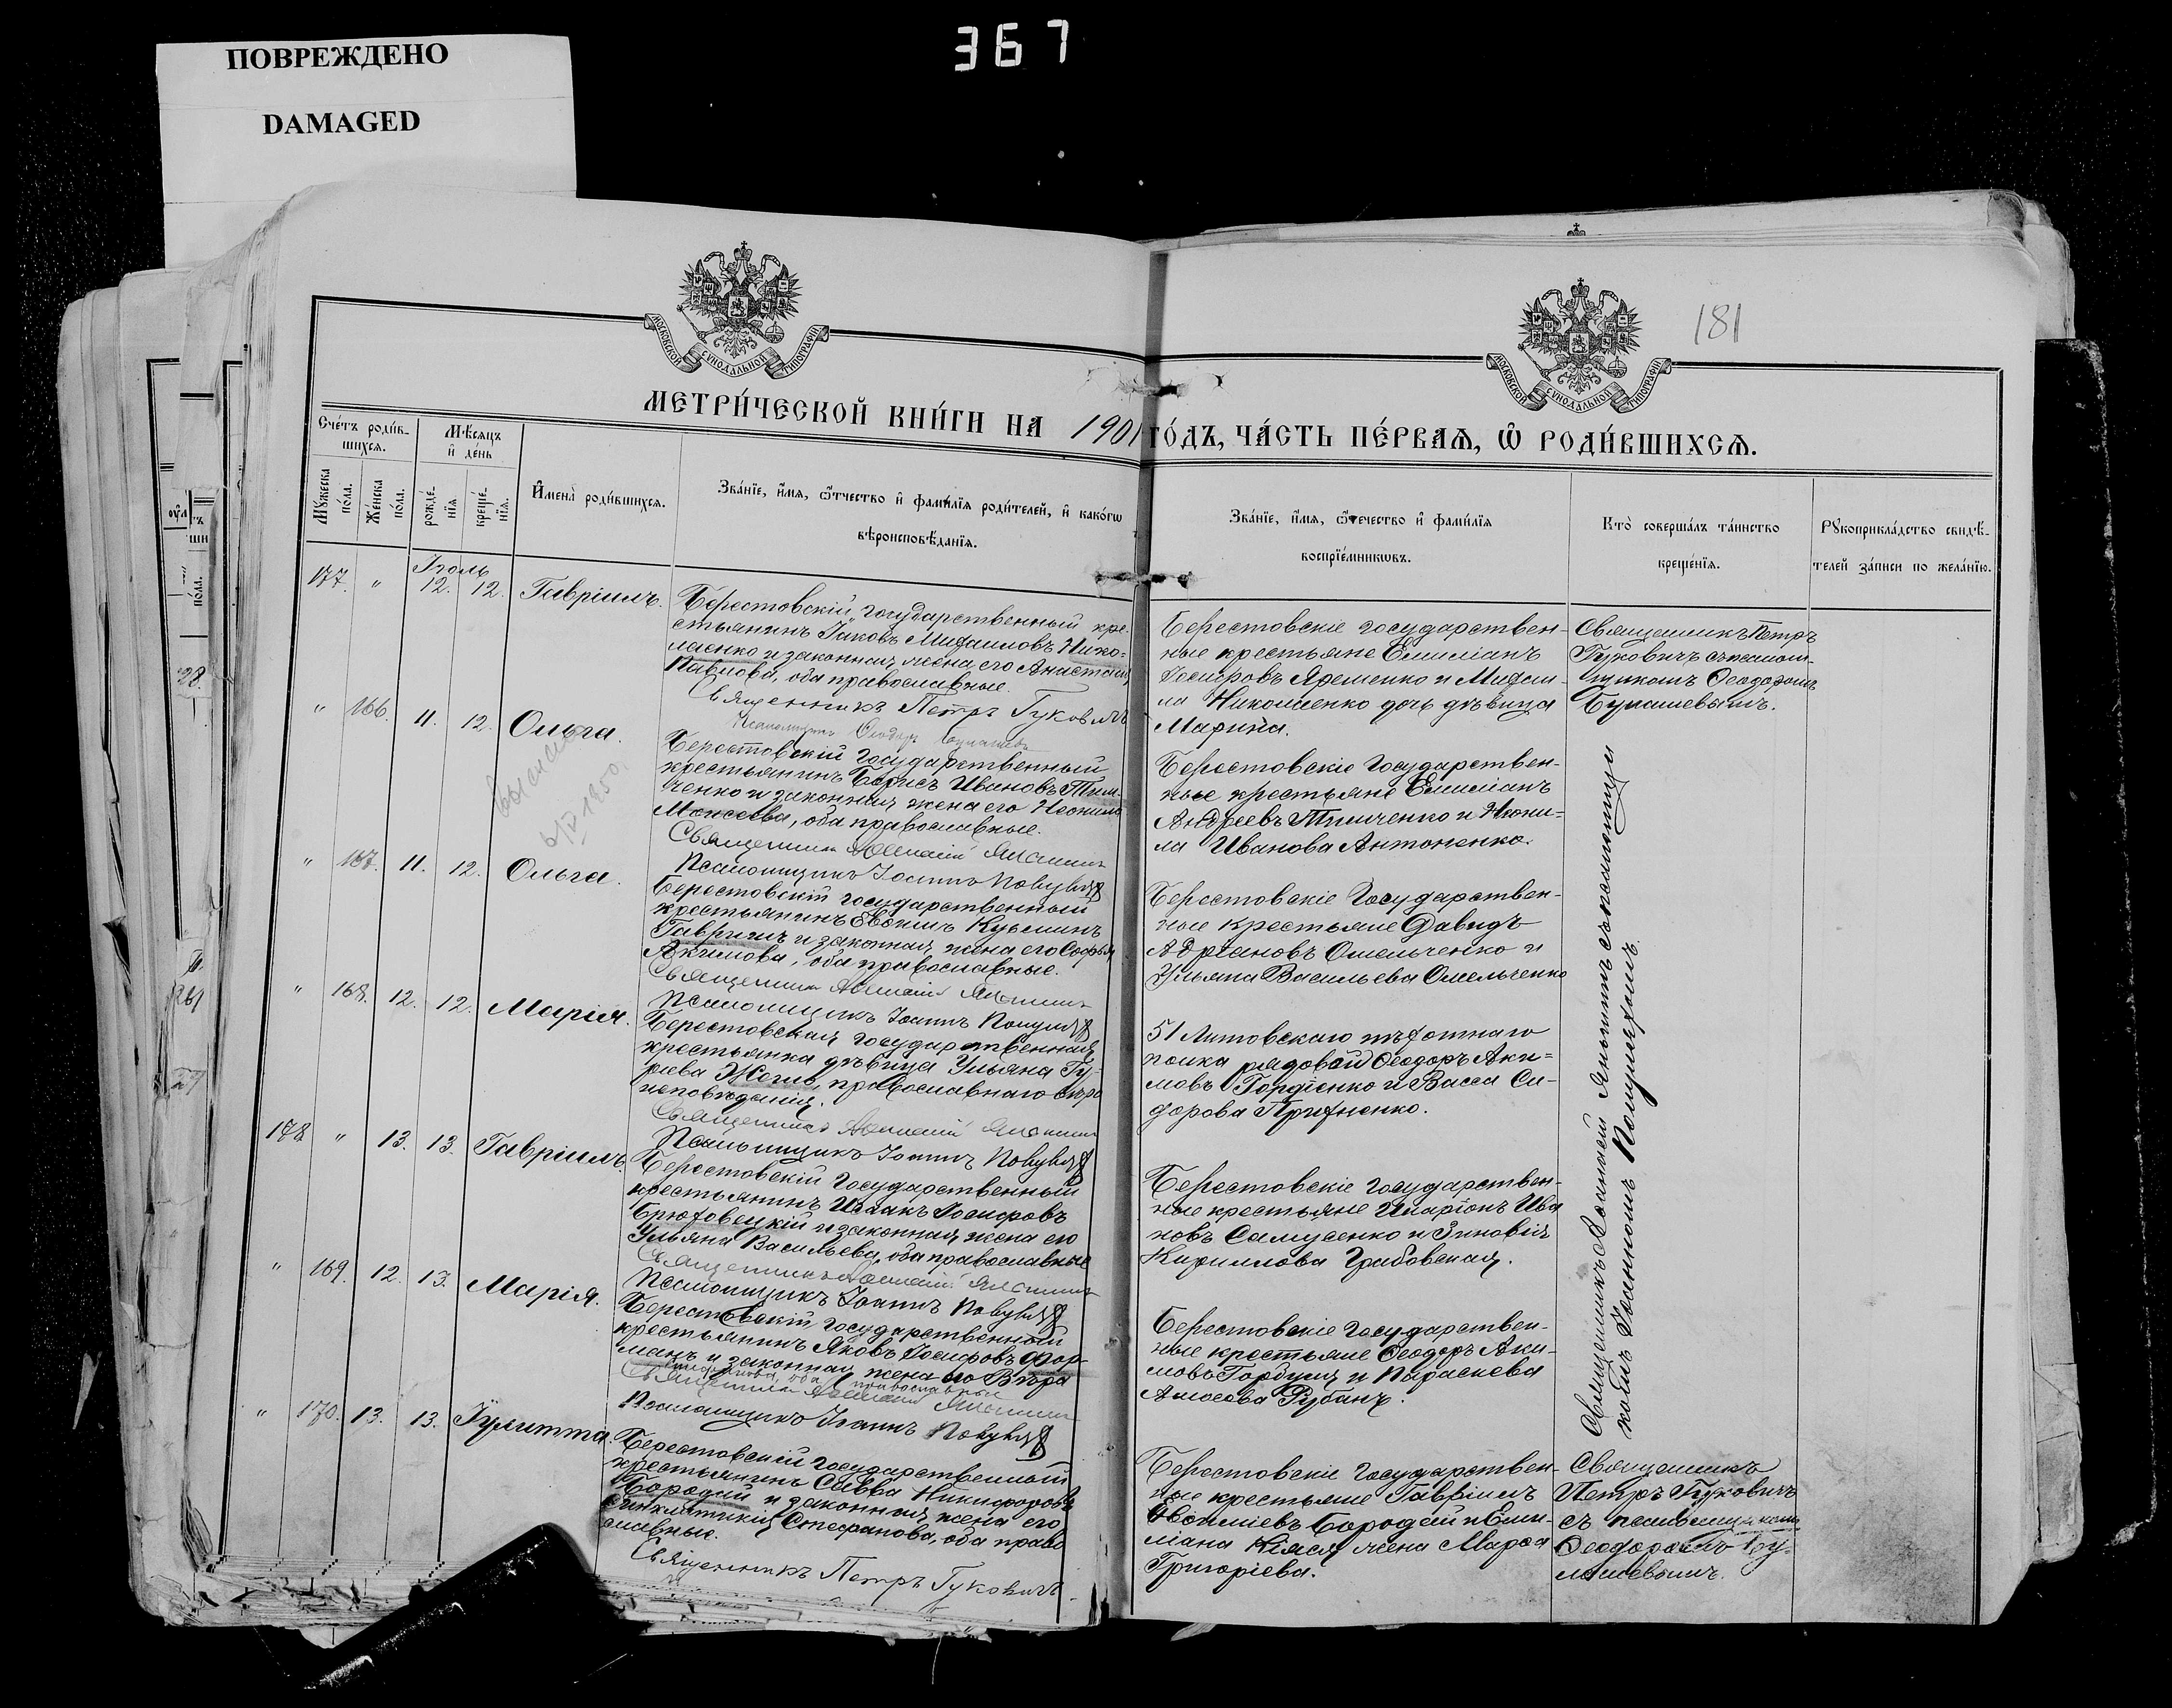 367
ПОВРЕЖДЕНО
DAMAGED
181
МОСКОВСКОЙ СѴНОДАЛЬНОЙ ТИПОГРАФІИ
МОСКОВСКОЙ СѴНОДАЛЬНОЙ ТИПОГРАФІИ
МЕТРИ́ЧЕСКОЙ КНИ́ГИ НА 1901 ГО́ДЪ, ЧА́СТЬ ПЕ́РВАѦ, Ѿ РОДИ́ВШИХСѦ.
Сче́тъ роди́в-
шихся.
Мѣ́сяцъ
и де́нь
Мꙋжеска
по́ла.
Же́нска
по́ла.
рожде́-
нія
креще́-
нія.
Имена̀ роди́вшихся.
Зва́ніе, и́мя, ѻ҆́тчество и фами́лія роди́телей, и како́гѡ
вѣроисповѣ́данія.
Зва́ніе, и́мя, ѻ҆те́чество и фами́лія
воспріе́мникѡвъ.
Кто̀ соверша́лъ та́инство
креще́нія.
Рꙋкоприкла́дство свидѣ́-
телей за́писи по жела́нію.
177. " Іюль 12. 12. Гавріилъ.
Берестовскій государственный кре-
стьянинъ Іаковъ Михаиловъ Нико-
лаенко и законная жена его Анастасія
Павлова, оба православные.
Священникъ Петръ Гуковичъ
Псаломщикъ Ѳеодоръ
Берестовскіе государствен-
ные крестьяне Емиліанъ
Іосифовъ Яременко и Михаи-
ла Николаенко дочь дѣвица
Марина.
Священникъ Петръ
Гуковичъ съ псалом-
щикомъ Ѳеодоромъ
" 166. 11. 12. Ольга.
Берестовскій государственный
крестьянинъ Борисъ Ивановъ Тим-
ченко и законная жена его Неонила
Моисеева, оба православные.
Священникъ
Псаломщикъ Іоаннъ
Берестовскіе Государствен-
ные крестьяне Емиліанъ
Андреевъ Тимченко и Неони-
ла Иванова Антоненко.
" 167. 11. 12. Ольга.
Берестовскій государственный
крестьянинъ Евѳимъ Кузьминъ
Гавришъ и законная жена его Софья
Акимова, оба православные.
Священникъ
Псаломщикъ Іоаннъ
Берестовскіе Государствен-
ные крестьяне Давидъ
Адріановъ Омельченко и
Ульяна Васильева Омельченко
" 168. 12. 12. Марія.
Берестовская государственная
крестьянка дѣвица Ульяна Гу-
ріева православнаго вѣро
исповѣданія.
Священникъ
Псаломщикъ Іоаннъ
51 Литовскаго пѣхотнаго
полка рядовой Ѳеодоръ Аки-
мовъ Гордіенко и Васса Си-
дорова Прихненко.
178 " 13. 13. Гавріилъ.
Берестовскій Государственный
крестьянинъ Исаакъ Іосифовъ
Брюховецкій и законная жена его
Ульяна Васильева, оба православные
Священникъ
Псаломщикъ Іоаннъ
Берестовскіе государствен-
ные крестьяне Иларіонъ Ива
новъ Самусенко и Зиновія
Кириллова Грабовская.
" 169. 12. 13. Марія.
Берестовскій государственный
крестьянинъ Яковъ Іосифовъ Фур-
манъ и законная жена его Вѣра
оба православные
Священникъ
Псаломщикъ Іоаннъ
Берестовскіе Государствен-
ные крестьяне Ѳеодоръ Аки-
мовъ и Параскева
Амосова Рубанъ.
Священникъ съ псаломщи
комъ Іоанномъ
" 170. 13. 13. Іулитта.
Берестовскій государственный
крестьянинъ Савва Никифоровъ
Бородай и законная жена его
Синклитикія Стефанова, оба право
славные.
Священникъ Петръ Гуковичъ
Берестовскіе Государствен-
ные крестьяне Гавріилъ
Бородай и Еми-
ліана жена Марѳа
Григоріева.
Священникъ
Петръ Гуковичъ
съ псаломщикомъ
Ѳеодоромъ